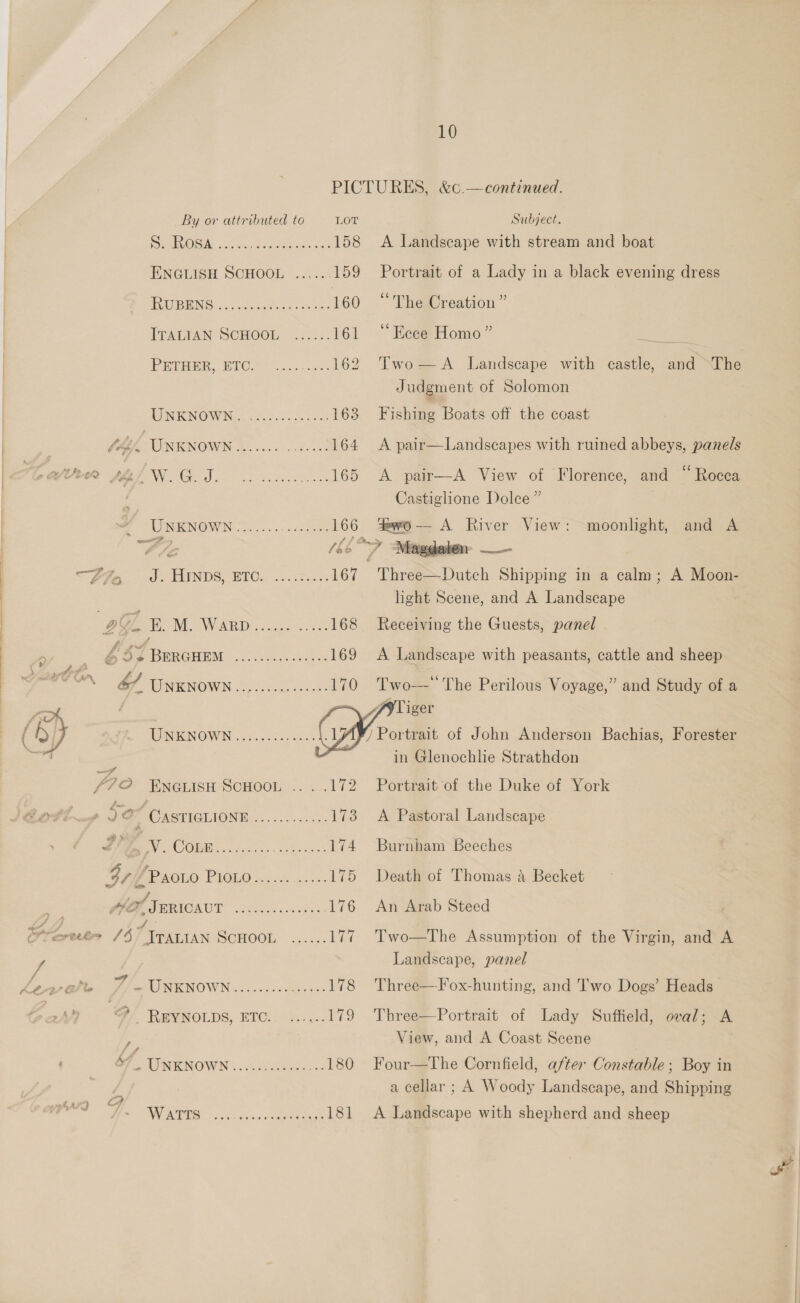 10
PICTURES, &c.—continued.
By or attributed to LOT Subject.
S. ROSA ..................... 158 A Landscape with stream and boat
ENGLISH SCHOOL ...... 159 Portrait of a Lady in a black evening dress
RUBENS ..................... 160 “The Creation”
ITALIAN SCHOOL ...... 161 “Ecce Homo”
PETHER, ETC. ............ 162 Two—A Landscape with castle, and The
Judgment of Solomon
UNKNOWN ............... 163 Fishing Boats off the coast
UNKNOWN ............... 164 A pair—Landscapes with ruined abbeys, panels
W. G. J. ............... 165 A pair—A View of Florence, and “Rocca
Castiglione Dolce”
UNKNOWN ............... 166 Two—A River View: moonlight, and A
166 Magdalen
J. HINDS, ETC. ............ 167 Three—Dutch Shipping in a calm; A Moon-
light Scene, and A Landscape
E. M. WARD ............ 168 Receiving the Guests, panel
BERGHEM ............... 169 A Landscape with peasants, cattle and sheep
UNKNOWN ............... 170 Two—“The Perilous Voyage,” and Study of a
Tiger
UNKNOWN ............... 171 Portrait of John Anderson Bachias, Forester
in Glenochlie Strathdon
ENGLISH SCHOOL ..... 172 Portrait of the Duke of York
CASTIGLIONE ............ 173 A Pastoral Landscape
V. COLE ..................... 174 Burnham Beeches
PAOLO PIOLO ............ 175 Death of Thomas à Becket
JERICAUT ............... 176 An Arab Steed
15/ ITALIAN SCHOOL ...... 177 Two—The Assumption of the Virgin, and A
Landscape, panel
7/- UNKNOWN ............... 178 Three—Fox-hunting, and Two Dogs’ Heads
REYNOLDS, ETC. ...... 179 Three—Portrait of Lady Suffield, oval; A
View, and A Coast Scene
UNKNOWN ............... 180 Four—The Cornfield, after Constable; Boy in
a cellar; A Woody Landscape, and Shipping
WATTS ..................... 181 A Landscape with shepherd and sheep